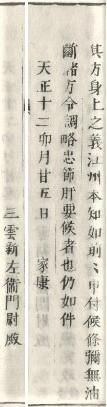 其方身上之義江州本知如則〻申付候條彌無油
斷諸方令調略忠節肝要候者也仍如件
天正十二卯月廿五日　家康
三雲新左衞門尉殿